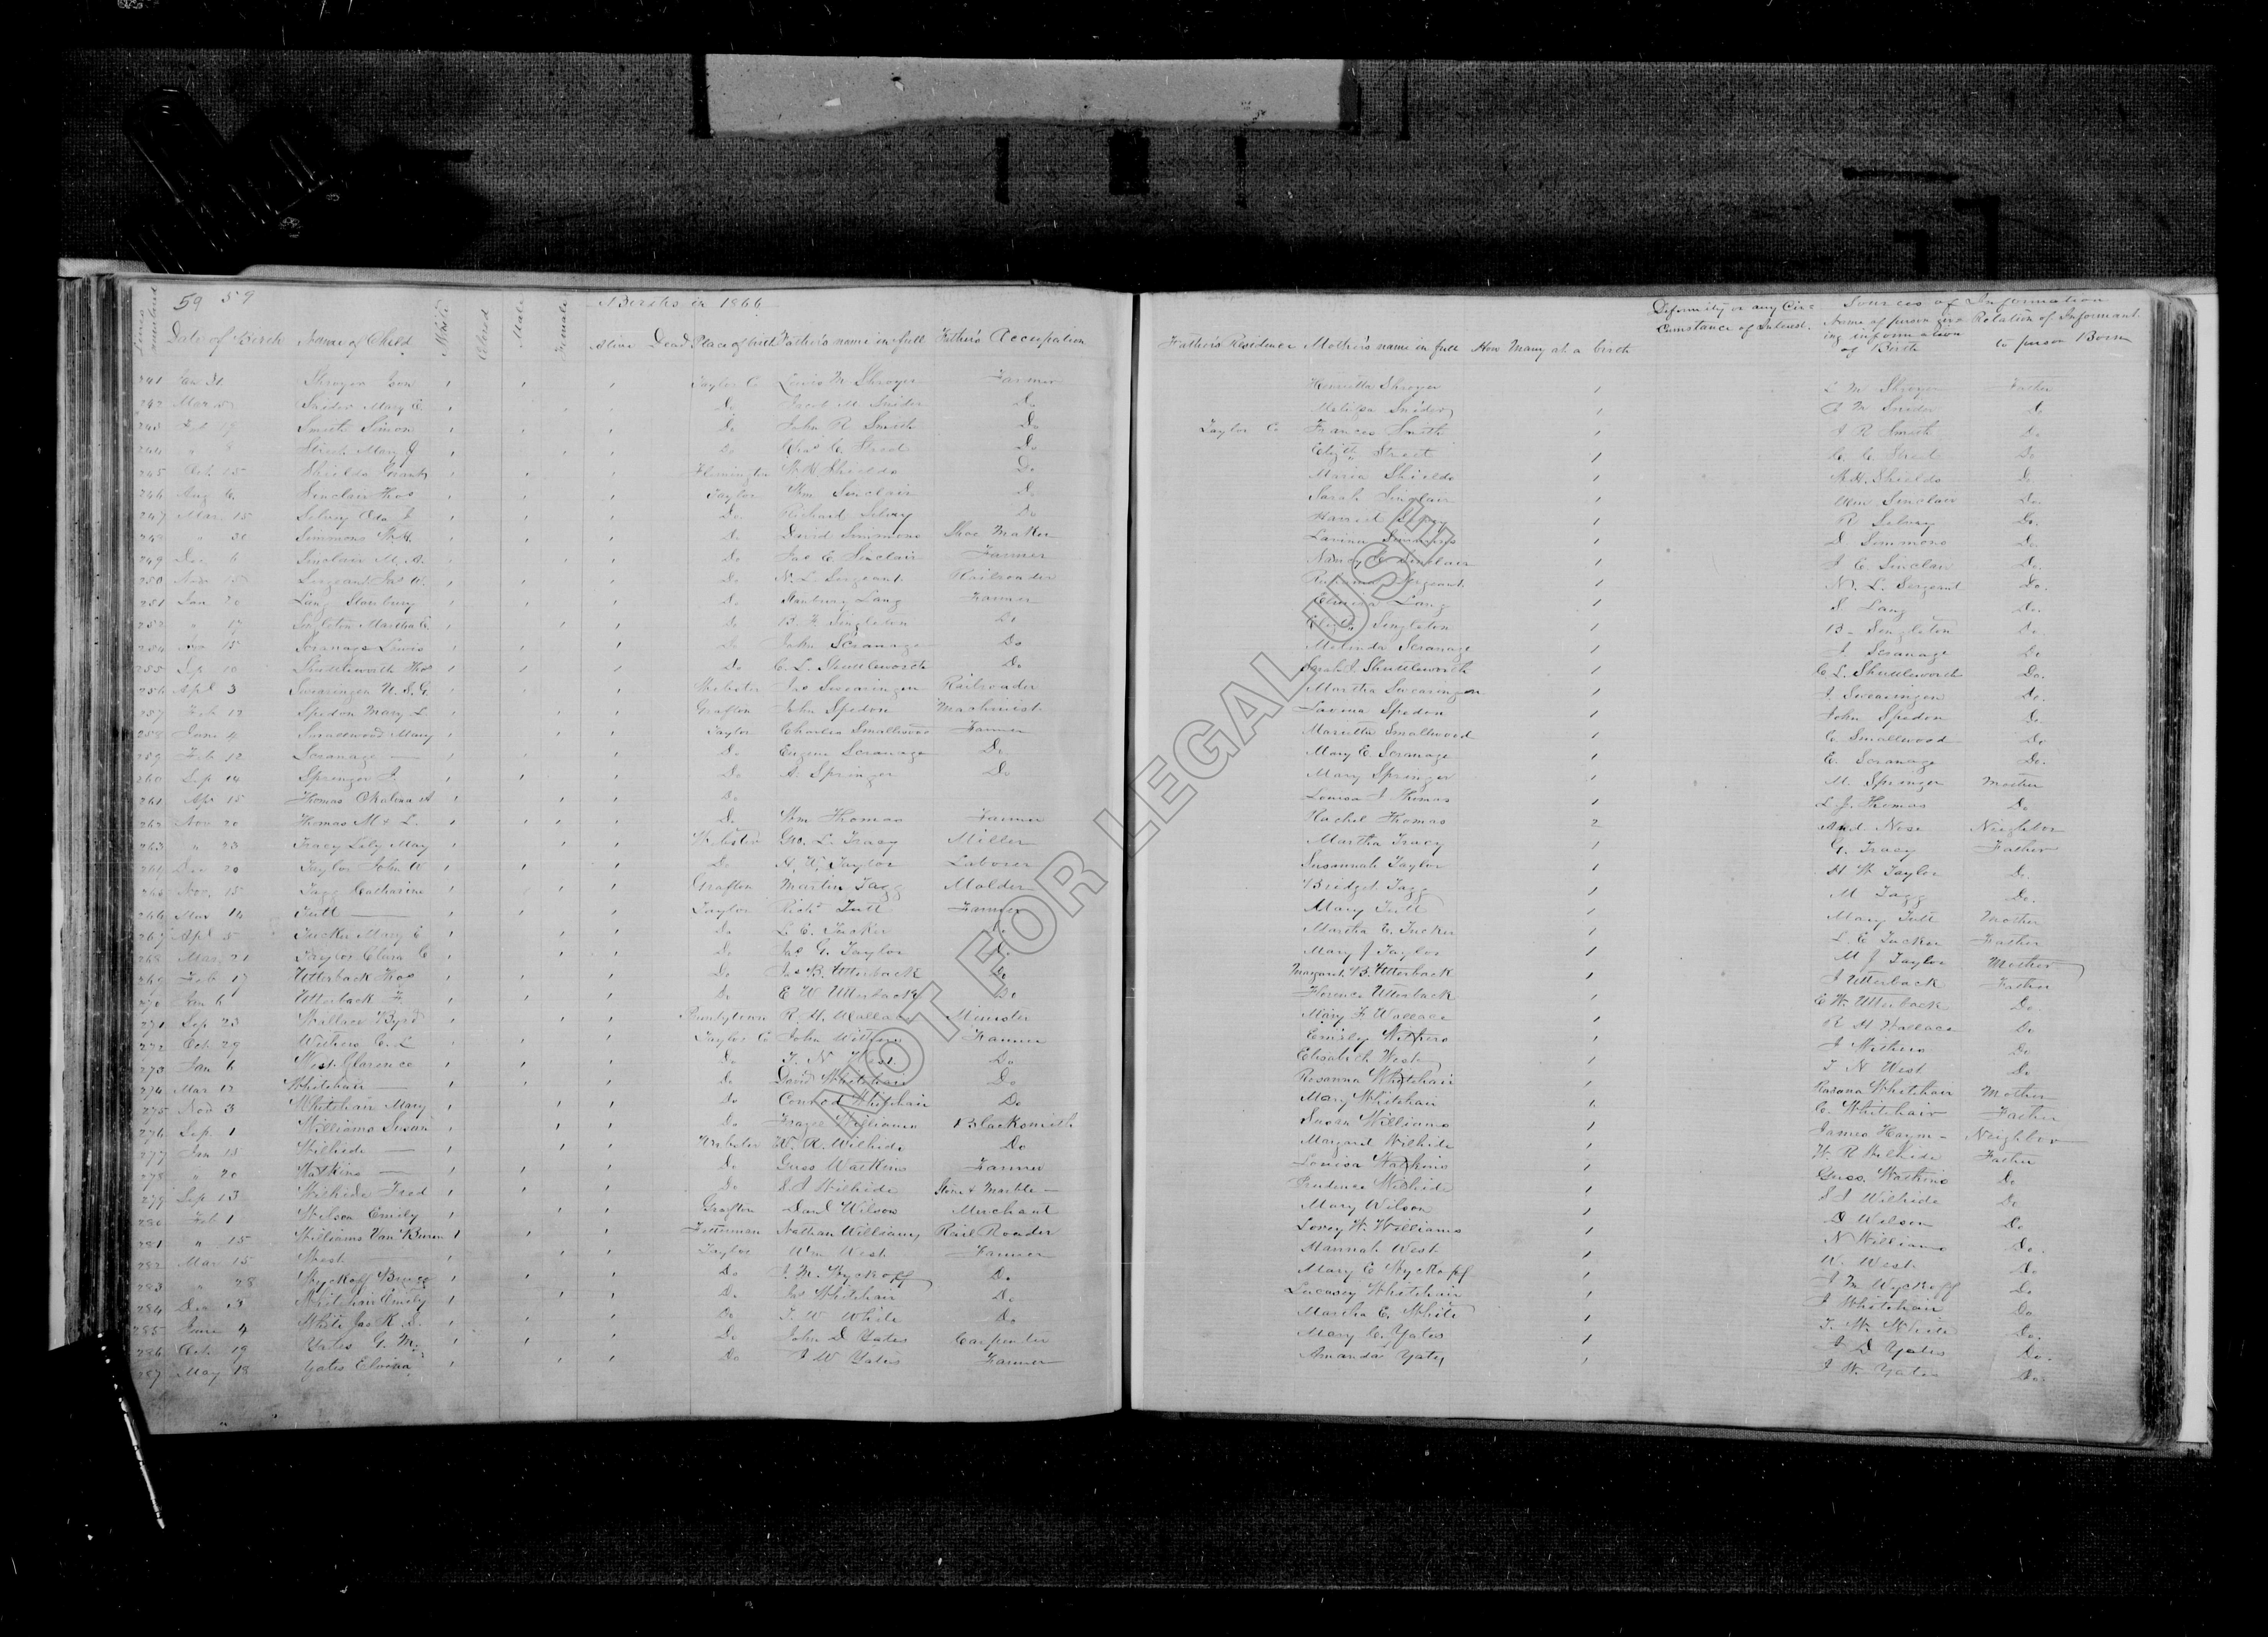 59 59 Births in 1866
Lines numbered Date of Birth Name of Child White Colored Male Female Alive Dead Place of birth Father's name in full Father's Occupation Father's Residence Mother's name in full How Many at a birth Deformity or any Circumstance of Interest. Sources of Information Name of person giving information of Birth Relation of Informant to person Born
241 Jan 31 Shroyer 1 1 1 Taylor Co Lewis M Shroyer Farmer Henrietta Shroyer 1 L M Shroyer Father
242 Mar 5 Snider Mary E 1 1 1 Do M Snider Do Snider 1 M Snider Do
243 Feb 17 Smith Simon 1 1 1 Do John R Smith Do Taylor Co Frances Smith 1 J R Smith Do
244 " 8 Street Mary J 1 1 1 Do Chas C. Street Do Elizth Street 1 C. C. Street Do
245 Oct 15 Shields Grant 1 1 1 Flemington W H Shields Do Maria Shields 1 W. H. Shields Do
246 Aug 6 Sinclair Thos 1 1 1 Taylor Wm Sinclair Do Sarah Sinclair 1 Wm Sinclair Do.
247 Mar 15 Selvey 1 1 1 Do. Richard Selvey Do Harriet Selvey 1 R Selvey Do.
248 " 30 Simmons 1 1 1 Do David Simmons Shoe Maker Lavina Simmons 1 D Simmons Do
249 Dec 6 Sinclair M. A. 1 1 1 Do Jas E. Sinclair Farmer Nancy C Sinclair 1 J E. Sinclair Do.
250 Nov 15 Sergeant Jas W. 1 1 1 Do N. L. Sergeant Railroader Sergeant 1 N. L. Sergeant Do.
251 Jan 20 Lang Stanbury 1 1 1 Do Stanbury Lang Farmer Lang 1 S. Lang Do.
252 " 17 Singleton Martha E. 1 1 1 Do B. F. Singleton Do Elizth Singleton 1 B. Singleton Do
254 15 Scranage Lewis 1 1 1 Do John Scranage Do Melinda Scranage 1 J Scranage Do
255 Sep 10 Shuttleworth Thos 1 1 1 Do C. L. Shuttleworth Do Sarah J. Shuttleworth 1 C L. Shuttleworth Do.
256 Apl 3 Swearingen U. S. G. 1 1 1 Webster Jas Swearingen Railroader Martha Swearingen 1 J. Swearingen Do.
257 Feb 12 Spedon Mary L. 1 1 1 Grafton John Spedon Machinist Lavina Spedon 1 John Spedon Do.
258 June 4 Smallwood Mary 1 1 1 Taylor Charles Smallwood Farmer Marietta Smallwood 1 C Smallwood Do
259 Feb 12 Scranage — 1 1 1 Do Eugene Scranage Do Mary E Scranage 1 E. Scranage Do.
260 Sep 14 Springer J. 1 1 1 Do A. Springer Do Mary Springer 1 M. Springer Mother
261 Apr 15 Thomas 1 1 1 Do Louisa J Thomas 1 L. J. Thomas Do
262 Nov 20 Thomas M & L. 1 1 1 1 Do Wm Thomas Farmer Rachel Thomas 2 And. Nose Neighbor
263 " 23 Tracy Lily May 1 1 1 Webster Geo. L. Tracy Miller Martha Tracy 1 G. Tracy Father
264 Dec 20 Taylor John W 1 1 1 Do H. W. Taylor Laborer Susannah Taylor 1 H W Taylor Do.
265 Nov. 15 Tagg Catharine 1 1 1 Grafton Martin Tagg Molder Bridget Tagg 1 M Tagg Do.
266 Mar 14 Tutt — 1 1 1 Taylor Richd Tutt Farmer Mary Tutt 1 Mary Tutt Mother
267 Apl 5 Tucker Mary E 1 1 1 Do L. E. Tucker Do Martha E. Tucker 1 L. E Tucker Father
268 Mar 21 Taylor Clara E 1 1 1 Do Jas G. Taylor Do Mary J Taylor 1 M J Taylor Mother
269 Feb 17 Utterback Thos 1 1 1 Do Jas B. Utterback Do Margaret B. Utterback 1 J Utterback Father
270 Jan 6 Utterback F. 1 1 1 Do E W Utterback Do Florence Utterback 1 E W. Utterback Do
271 Sep 23 Wallace Byrd 1 1 1 Pruntytown R. H. Wallace Minister Mary F Wallace 1 R H Wallace Do
272 Oct 29 Withers C. L 1 1 1 Taylor Co John Withers Farmer Emily Withers 1 J Withers Do
273 Jan 6 West Clarence 1 1 1 Do T. N West Do Elisabeth West 1 T N West Do
274 Mar 12 Whitehair — 1 1 1 Do David Whitehair Do Rosanna Whitehair 1 Rosana Whitehair Mother
275 Nov 3 Whitehair Mary 1 1 1 Do Conrod Whitehair Do Mary Whitehair 1 C. Whitehair Father
276 Sep. 1 Williams Susan 1 1 1 Do Williams Blacksmith Susan Williams 1 James Haym— Neighbor
277 Jan 15 Wilhide — 1 1 1 Webster W. R. Wilhide Do Margaret Wilhide 1 W R Wilhide Father
278 " 20 Watkins — 1 1 1 Do Guss Watkins Farmer Louisa Watkins 1 Guss. Watkins Do
279 Sep 13 Wilhide Fred 1 1 1 Do S. J Wilhide Stone & Marble — Prudence Wilhide 1 S J Wilhide Do
280 Feb 1 Wilson Emily 1 1 1 Grafton Danl Wilson Merchant Mary Wilson 1 D Wilson Do
281 " 15 Williams Van Buren 1 1 1 Fetterman Nathan Williams Rail Roader Lovey W. Williams 1 N Williams Do.
282 Mar 15 West — 1 1 1 Taylor Wm West Farmer Hannah West 1 W. West Do
283 " 28 Wyckoff 1 1 1 Do J. M. Wyckoff Do Mary E Wyckoff 1 J M Wyckoff Do
284 Dec 3 Whitehair Emily 1 1 1 Do Jas Whitehair Do Whitehair 1 J Whitehair Do
285 June 4 White Jas R. D. 1 1 1 Do T. W White Do Martha E. White 1 T. W. White Do.
286 Oct 19 Yates G. M. 1 1 1 Do John D Yates Carpenter Mary C. Yates 1 J D Yates Do.
287 May 18 Yates Elvira 1 1 1 Do J W Yates Farmer Amanda Yates 1 J W. Yates Do.
NOT FOR LEGAL USE